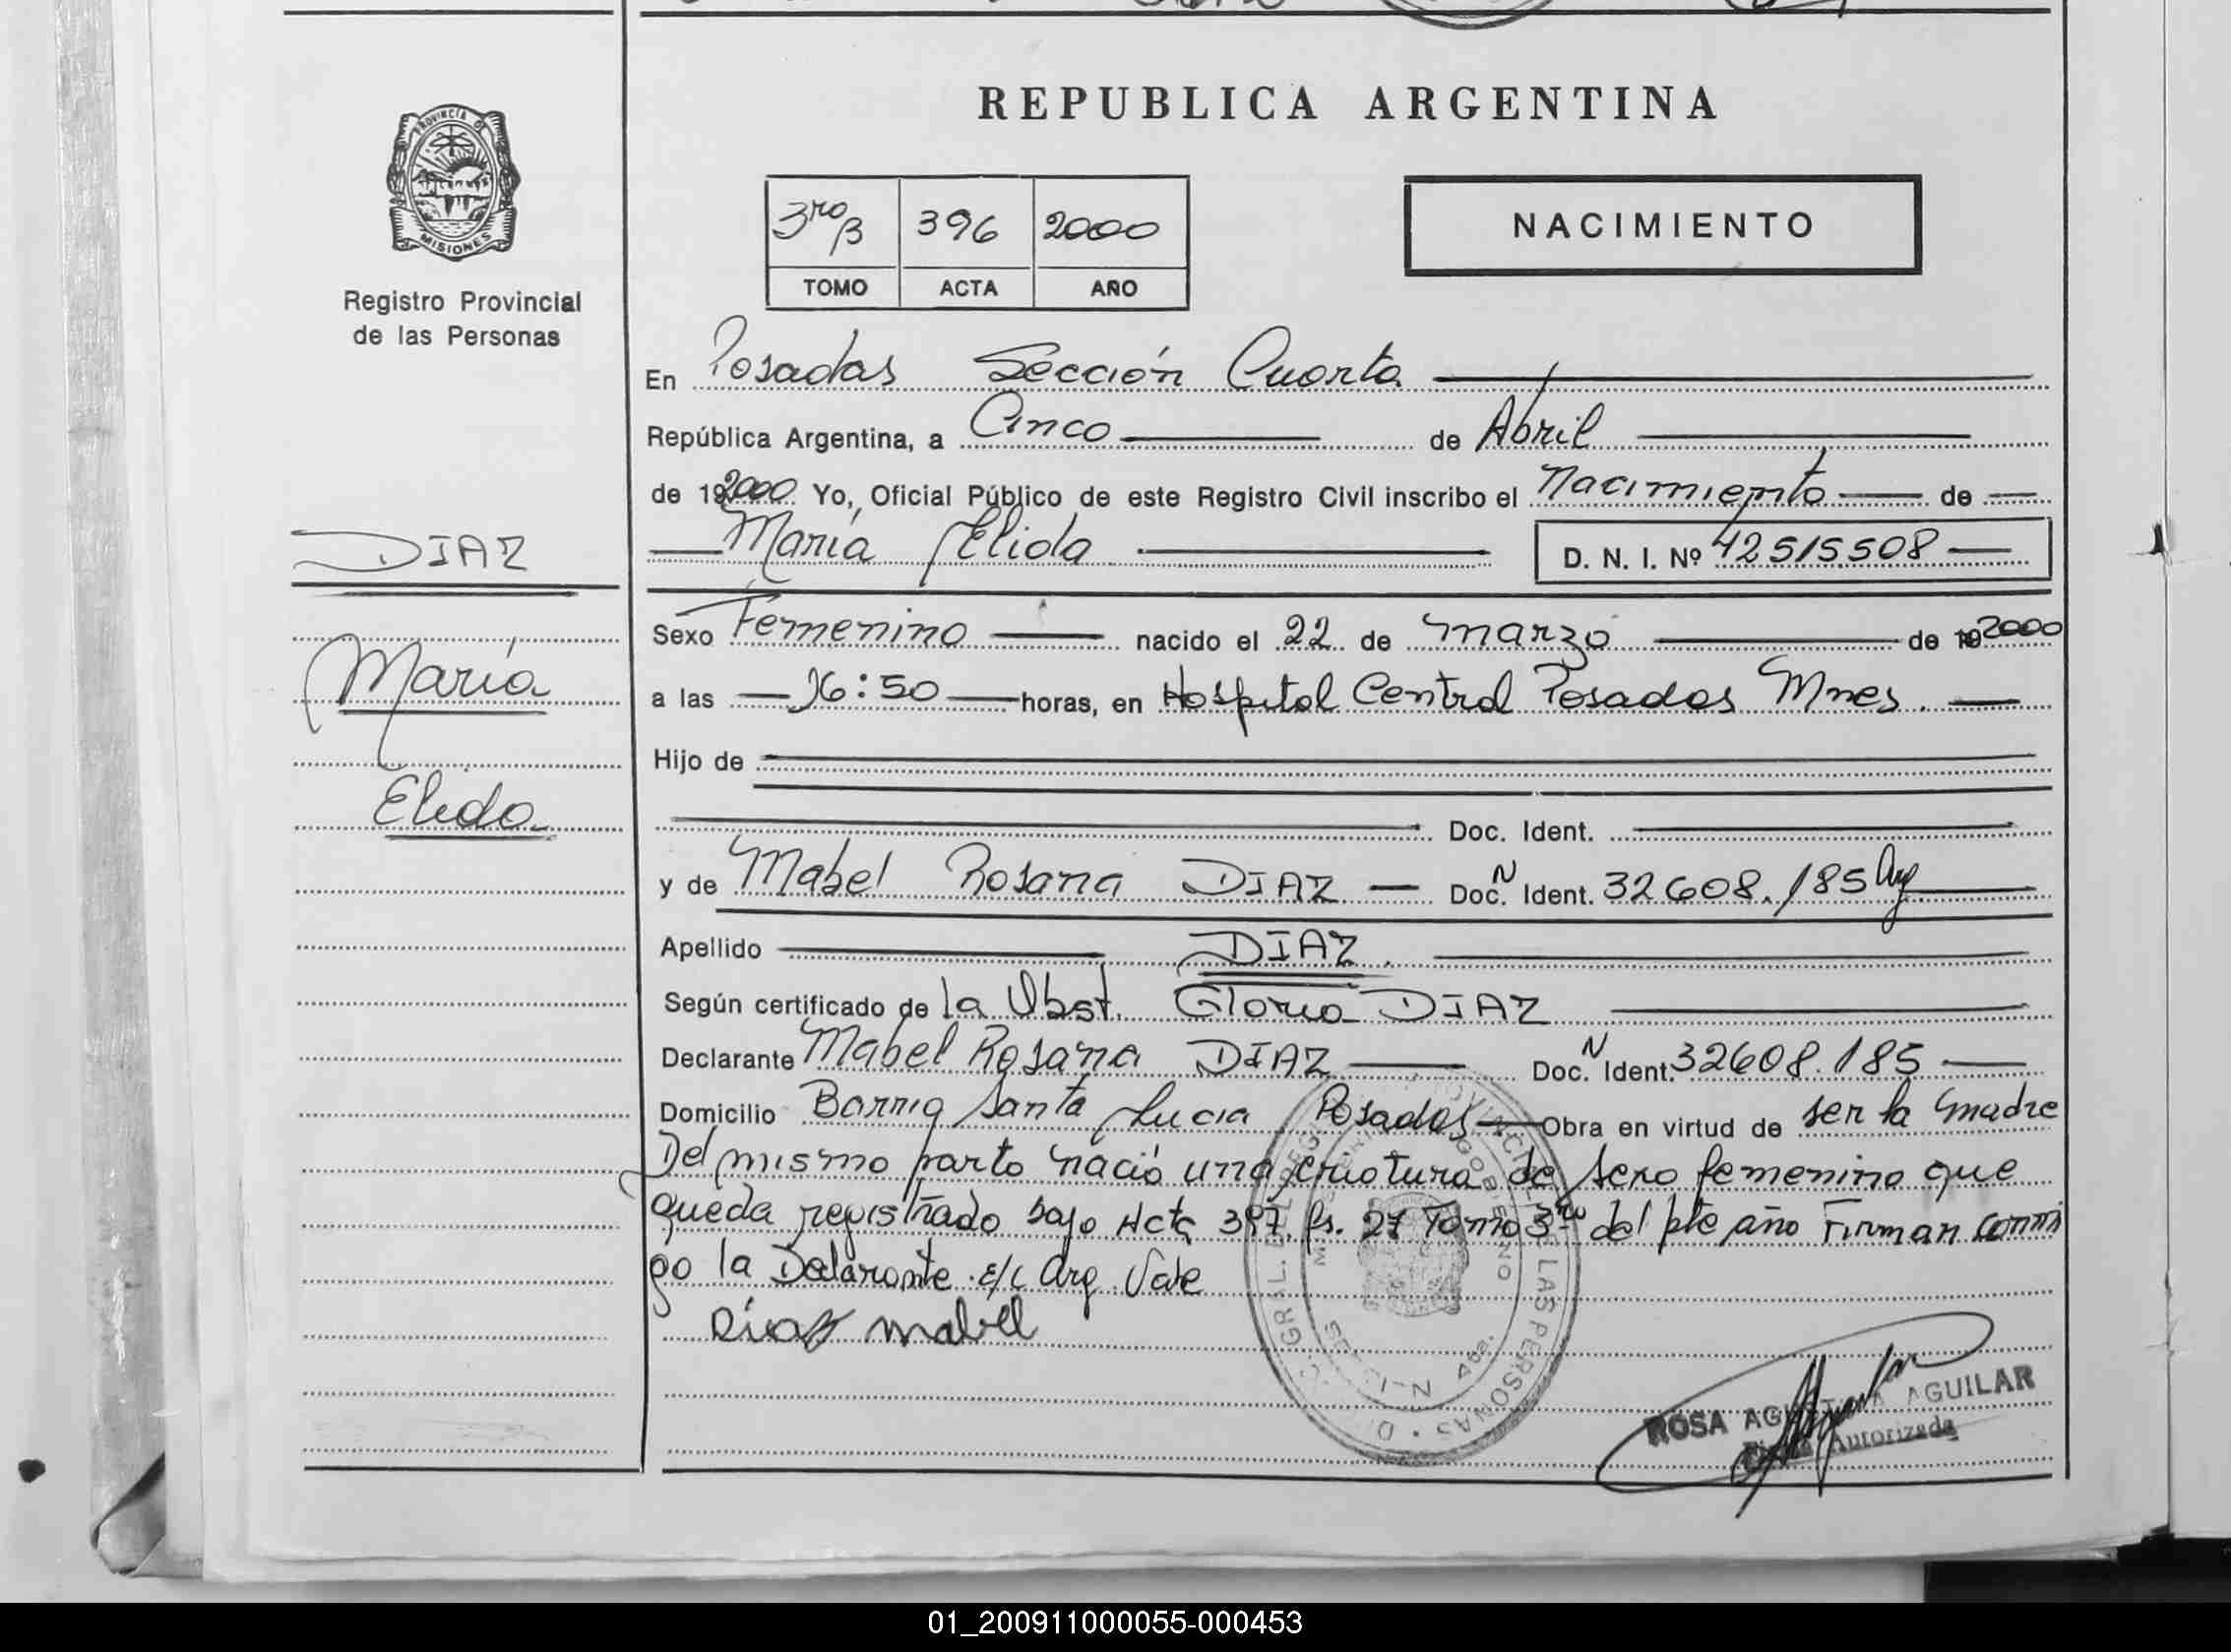 REPUBLICA ARGENTINA
PROVINCIA D
MISIONES
Registro Provincial
de las Personas
3ro B 396 2000
TOMO ACTA AÑO
NACIMIENTO
En Posadas Sección Cuarta
República Argentina, a Cinco de Abril
de 19 2000 Yo, Oficial Público de este Registro Civil inscribo el Nacimiento de
María Elida D. N. I. Nº 42515508
DIAZ
María
Elida
Sexo Femenino nacido el 22 de marzo de 19 2000
a las 16:50 horas, en Hospital Central Posadas Mnes.
Hijo de
Doc. Ident.
y de Mabel Rosana DIAZ Doc. N Ident. 32608.185 Arg
Apellido DIAZ.
Según certificado de la Obst. Gloria DIAZ
Declarante Mabel Rosana DIAZ Doc. N Ident. 32608.185
Domicilio Barrio Santa Lucia Posadas Obra en virtud de ser la madre
Del mismo parto nació una criatura de sexo femenino que
queda registrado bajo Acta 397 fs. 27 Tomo 3ro del pte año Firman conmi
go la Declarante. e/c Arg. Vale
Diaz mabel
LAS PERSONAS
GOBIERNO
4ta.
ROSA AGUILAR
Autorizada
01_200911000055-000453